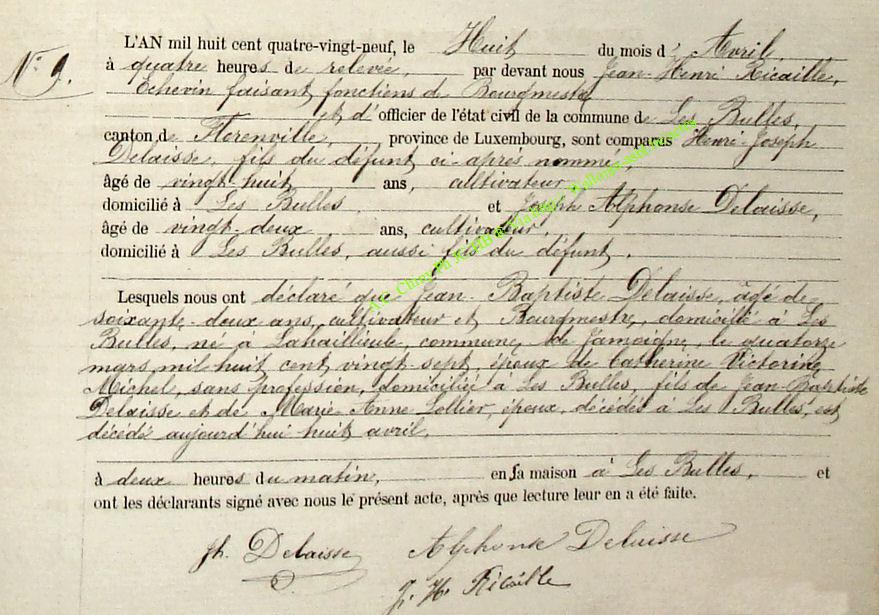 N° 9.
L'AN mil huit cent quatre-vingt-neuf, le Huit du mois d' Avril
à quatre heures de relevée, par devant nous Jean-Henri Ricaille,
Echevin faisant fonctions de Bourgmestre
et d'officier de l'état civil de la commune de Les Bulles,
canton de Florenville, province de Luxembourg, sont comparus Henri-Joseph
Delaisse, fils du défunt ci-après nommé,
âgé de vingt-huit ans, cultivateur
domicilié à Les Bulles et Joseph Alphonse Delaisse,
âgé de vingt-deux ans, cultivateur,
domicilié à Les Bulles, aussi fils du défunt.
Lesquels nous ont déclaré que Jean-Baptiste Delaisse, âgé de
soixante-deux ans, cultivateur et Bourgmestre, domicilié à Les
Bulles, né à Lahailleule, commune de Jamoigne, le quatorze
mars mil huit cent vingt-sept, époux de Catherine Victorine
Michel, sans profession, domiciliée à Les Bulles, fils de Jean-Baptiste
Delaisse et de Marie Anne Lollier, époux, décédés à Les Bulles, est
décédé aujourd'hui huit avril,
à deux heures du matin, en sa maison à Les Bulles, et
ont les déclarants signé avec nous le présent acte, après que lecture leur en a été faite.
Jh. Delaisse Alphonse Delaisse
J. H. Ricaille